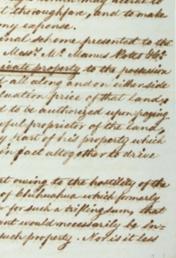 t thoroughfare, and to make
ony expense.
onal scheme presented to the
Messrs. Mc. Manus Potts &
ivate property to the possession
all along and on either side
uation price of that land,
d to be authorized upon paying
ful proprietor of the land,
part of his property which
in fact altogether to drive
t owing to the hostility of the
of Chihuahua which formerly
for such a trifling sum, that
ant would necessarily be
such property. Nor is it less